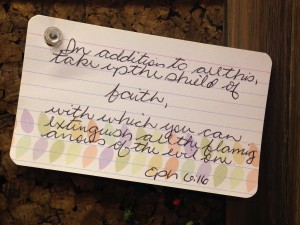 In addition to all this,
take up the shield of
faith,
with which you can
extinguish all the flaming
arrows of the evil one
Eph 6:16